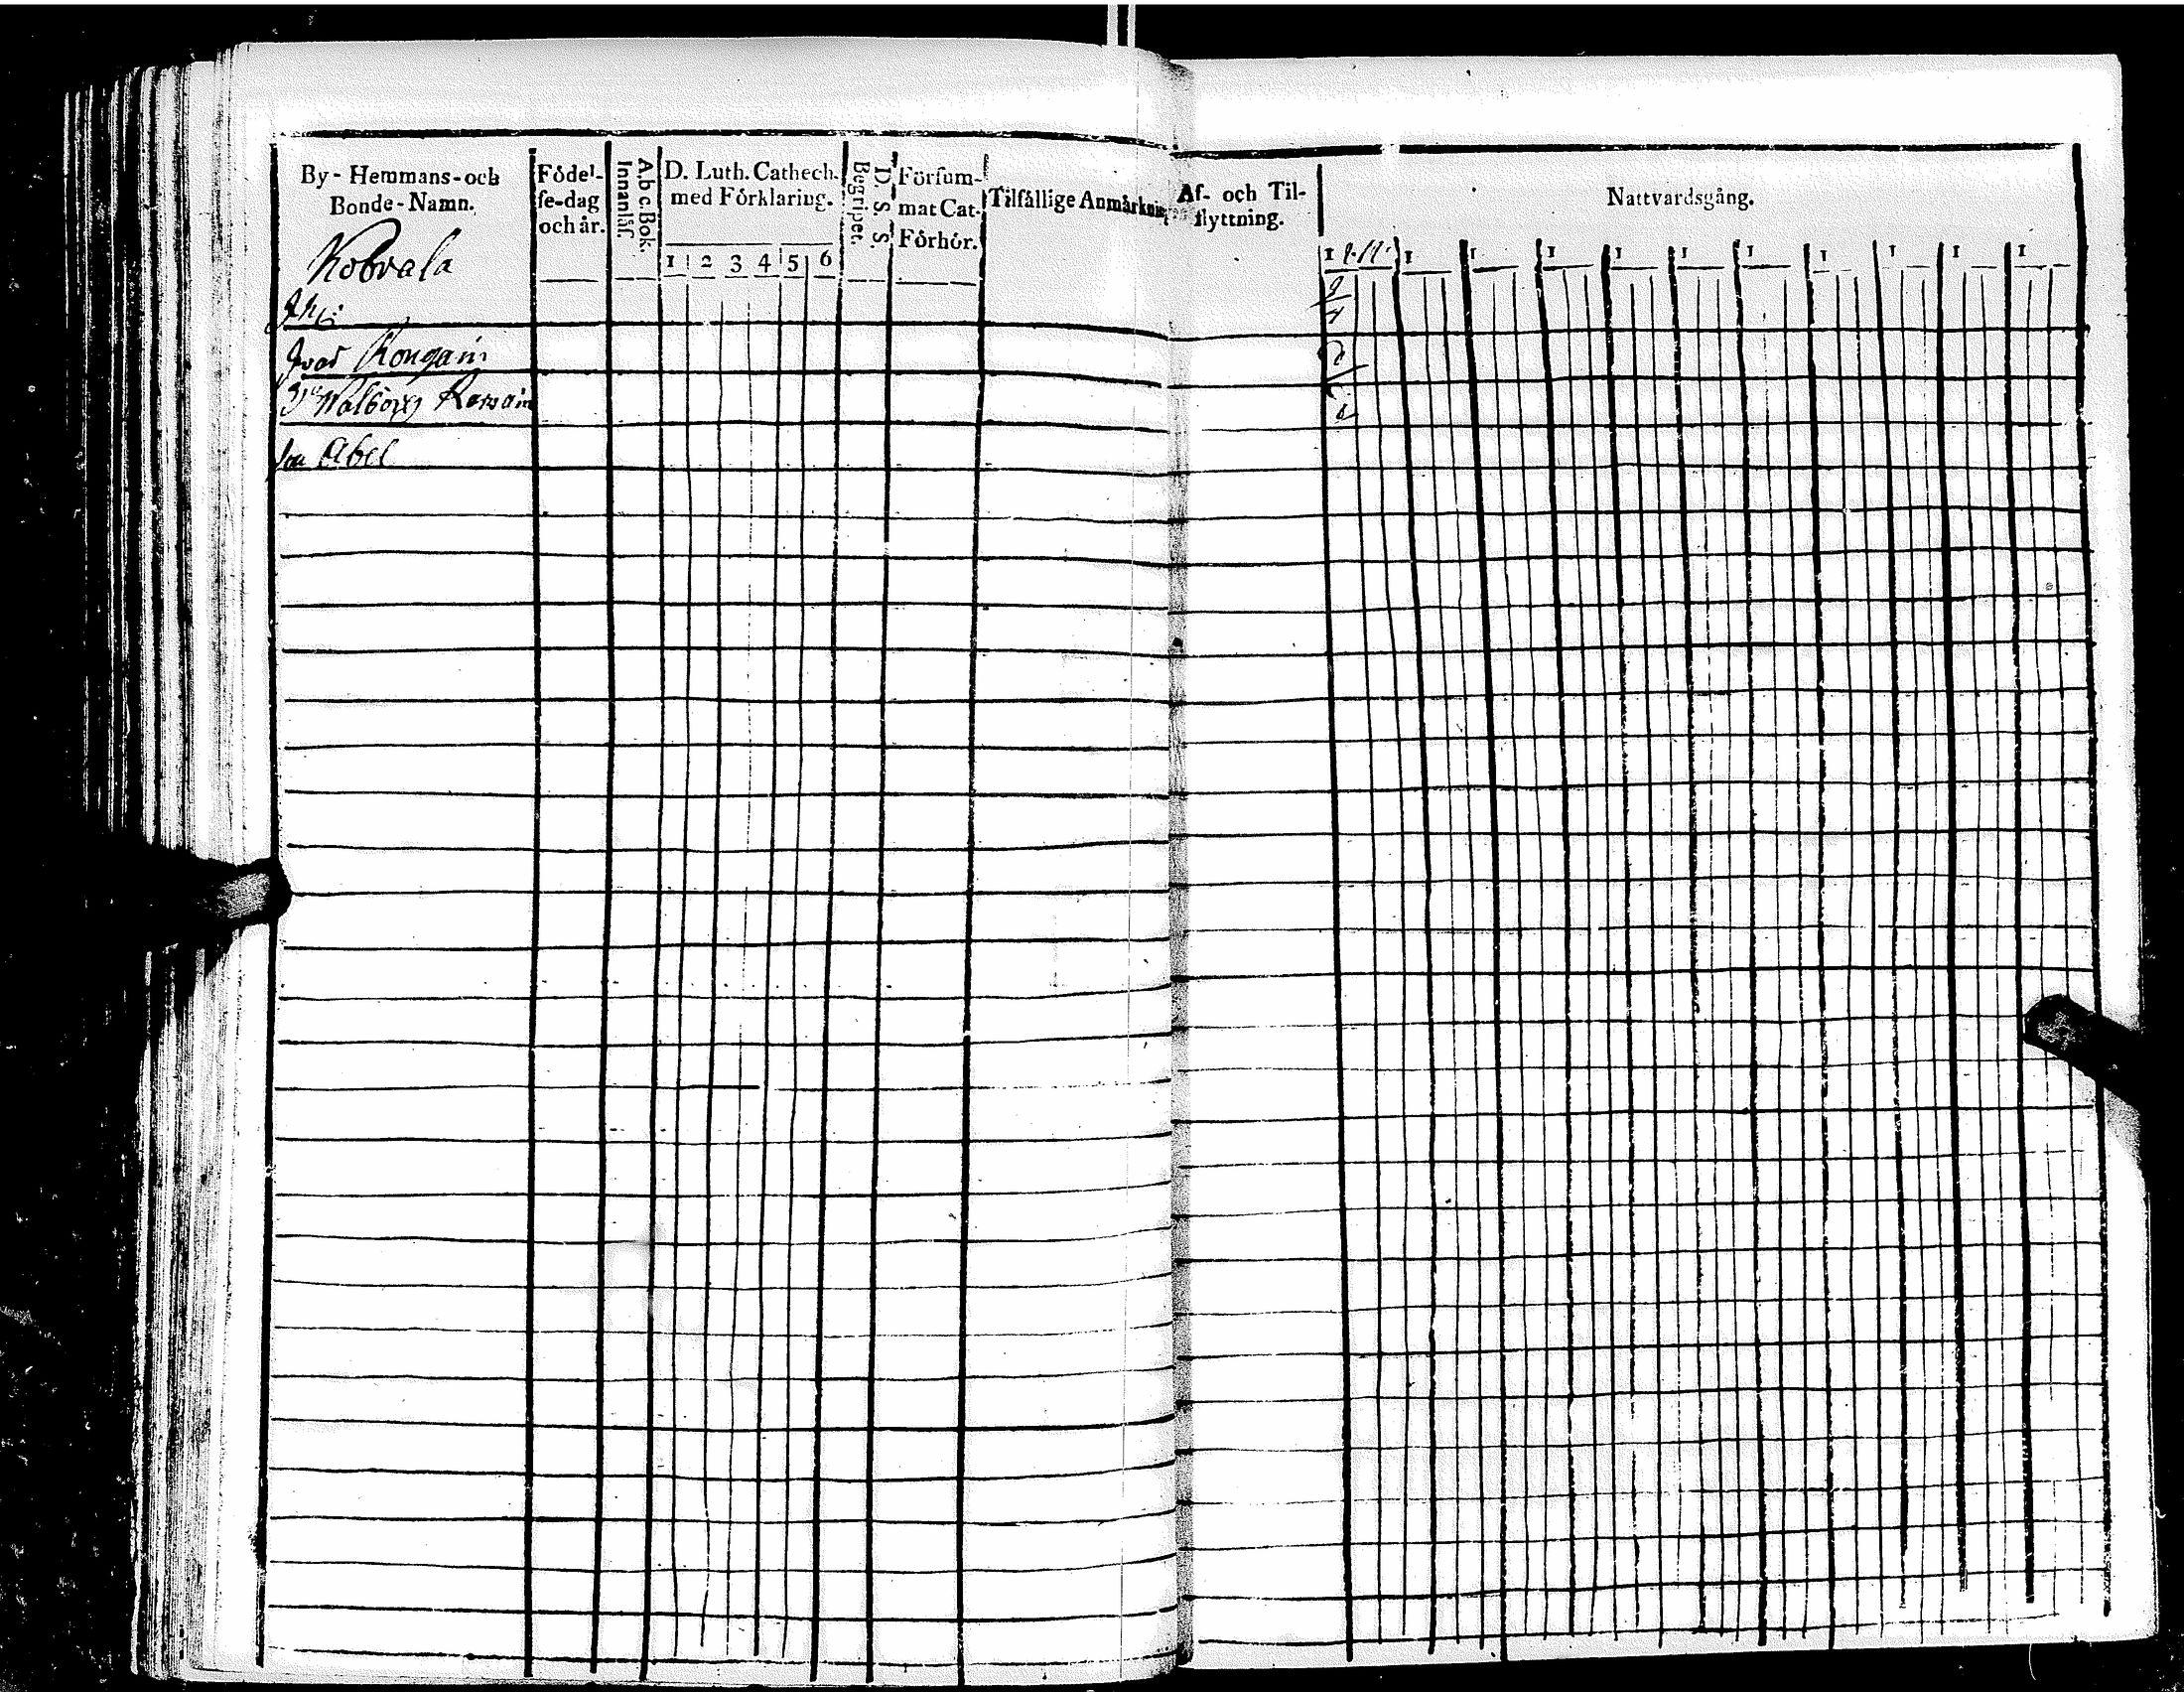 By- Hemmans- och
Bonde-Namn.
Födel-
se-dag
och år.
Abc Bok.
Innanläs.
D. Luth. Cathech.
med Förklaring.
1 2 3 4 5 6
D. S. S.
Begripet.
Försum-
mat Cat-
Förhör.
Tilfällige Anmärkning
Af- och Til-
flyttning.
Nattvardsgång.
1 1 1 1 1 1 1 1 1 1 1
Kobvala
Ivar Kongain
Walborg
Abel